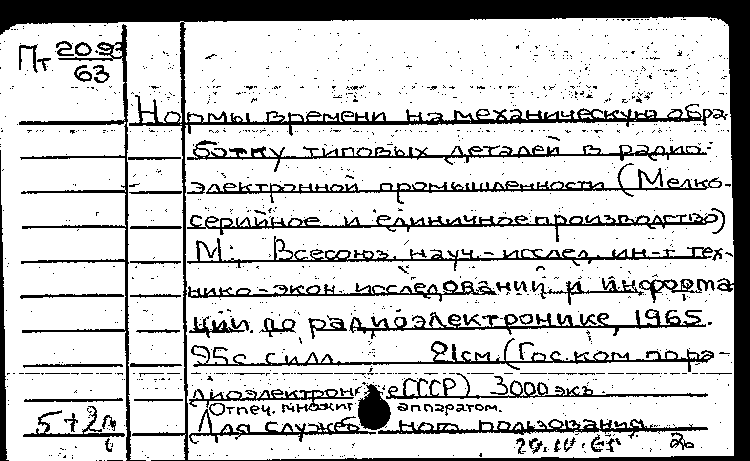 Пт 2093
63
Нормы времени на механическую обра-
ботку типовых деталей в радио-
электронной промышленности (Мелко-
серийное и единичное производство)
М., Всесоюз. науч.-исслед. ин-т тех-
нико-экон. исследований и информа-
ции по радиоэлектронике, 1965.
95с. с илл. 21см. (Гос. ком. по ра-
диоэлектрон е СССР) 3000 экз.
Отпеч. множит аппаратом.
Для служеб ного пользования.
5+2д